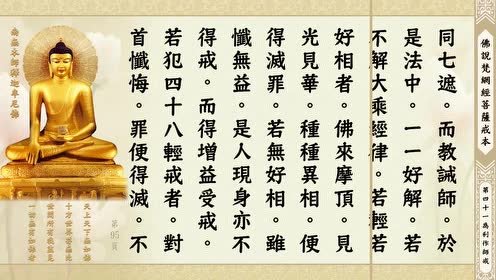 佛說梵網經菩薩戒本
第四十一為利作師戒
同七遮。而教誡師。於
是法中。一一好解。若
不解大乘經律。若輕若
好相者。佛來摩頂。見
光見華。種種異相。便
得滅罪。若無好相。雖
懺無益。是人現身亦不
得戒。而得增益受戒。
若犯四十八輕戒者。對
首懺悔。罪便得滅。不
第95頁
南無本師釋迦牟尼佛
天上天下無如佛
十方世界亦無比
世間所有我盡見
一切無有如佛者